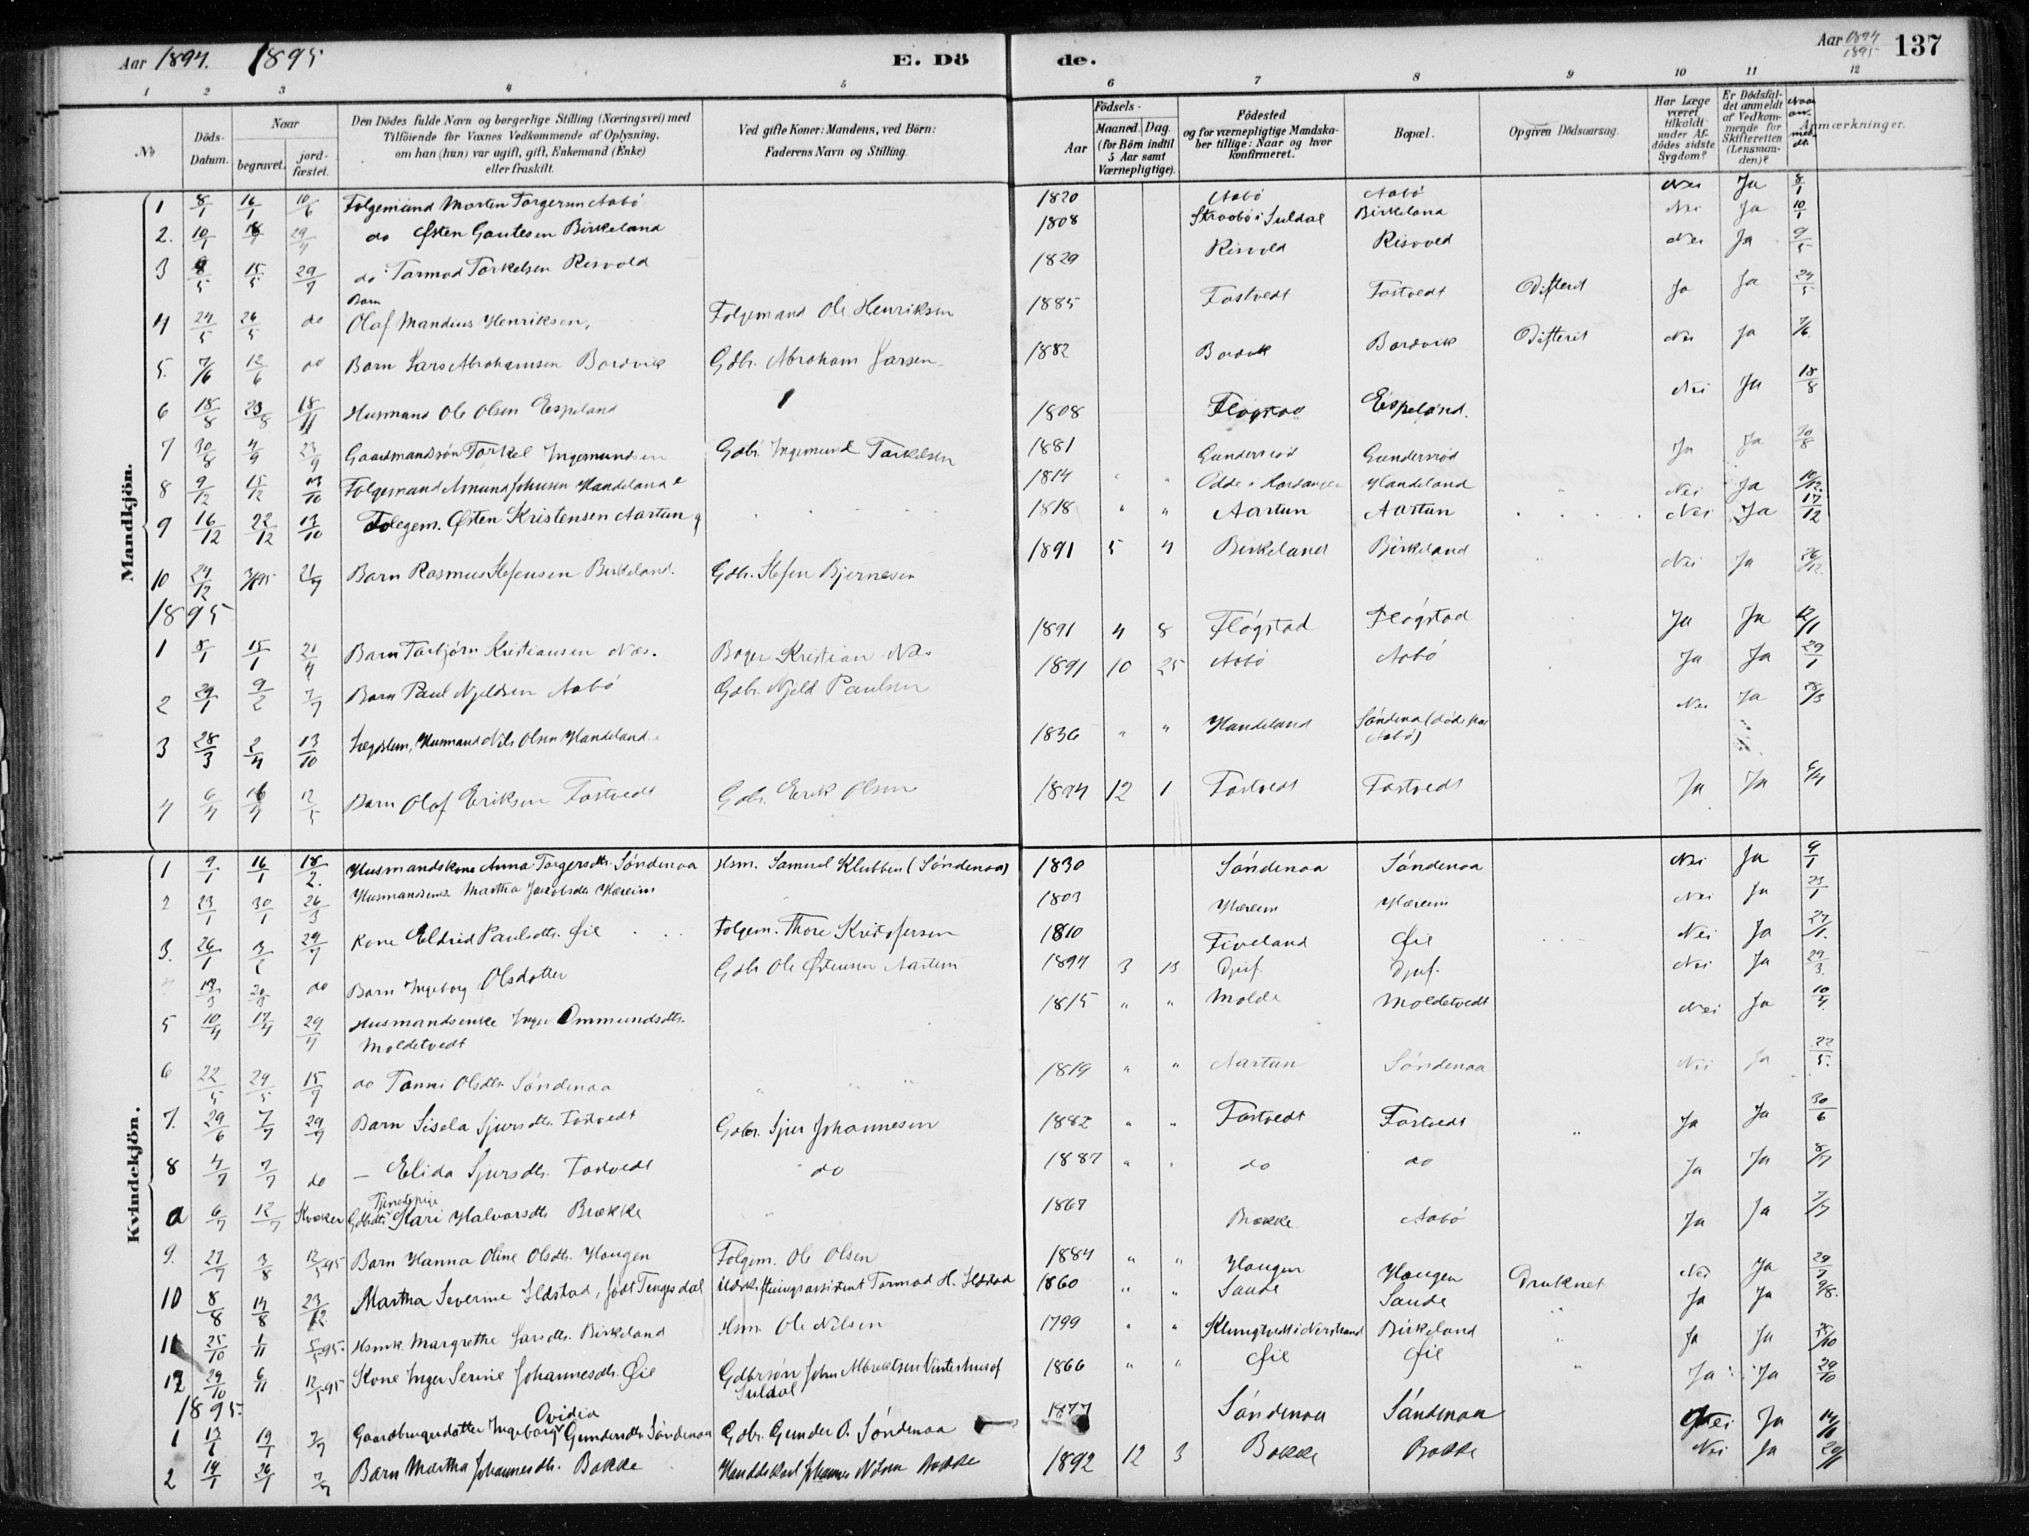 Aar 1894. 1895 E. Dö de. Aar 1894 1895 137
1 2 3 4 5 6 7 8 9 10 11 12
No Döds-Datum. Naar begravet. jordfæstet. Den Dödes fulde Navn og borgerlige Stilling (Næringsvei) med Tilföiende for Voxnes Vedkommende af Oplysning, om han (hun) var ugift, gift, Enkemand (Enke) eller fraskilt. Ved gifte Koner: Mandens, ved Börn: Faderens Navn og Stilling. Födsels- Aar Maaned. Dag. (for Börn indtil 5 Aar samt Værnepligtige). Födested og for værnepligtige Mandskaber tillige: Naar og hvor konfirmeret. Bopæl. Opgiven Dödsaarsag. Har Læge været tilkaldt under Afdödes sidste Sygdom? Er Dödsfaldet anmeldt af Vedkommende for Skifteretten (Lensmanden)? Anmærkninger.
Mandkjön.
1 8/1 16/1 10/6 Folgemand Morten Torgersen Aabö 1820 Aabö Aabö Nei Ja 8/1
2. 10/1 29/7 do Østen Gautesen Birkeland 1808 Straabö i Suldal Birkeland Nei Ja 10/1
3 8/5 15/5 29/7 do Tormod Torkelsen Risvold 1829 Risvold Risvold Nei Ja 9/5
4 24/5 26/5 do Barn Olaf Mandius Henriksen, Folgemand Ole Henriksen 1885 Fostvedt Fostvedt Difterit Ja Ja 24/5
5. 7/6 12/6 do Barn Lars Abrahamsen Bordvik Gdbr. Abraham Larsen 1882 Bordvik Bordvik Difterit Nei Ja 7/6
6 18/8 23/8 18/11 Husmand Ole Olsen Espeland 1808 Flógstad Espeland. Nei Ja 18/8
7 30/8 4/9 23/9 Gaardmandssön Torkel Ingemundsen Gdbr. Ingemund Torkelsen 1881 Gundersród Gundersród Ja Ja 30/8
8 9/12 15/12 13/10 Folgemand Amund Johnsen Handeland 1814 " " Odde i Hardanger Handeland Nei Ja 10/12.
9 16/12 22/12 13/10 Folgem. Østen Kristensen Aartun 1818 " " Aartun Aartun Nei Ja 17/12
10 24/12 21/7 Barn Rasmus Stefensen Birkeland. Gdbr. Stefen Bjernesen 1891 5 4 Birkeland Birkeland Nei Ja 26/12.
1895
1 8/1 15/1 Barn Torbjörn Kristiansen Næs. Bager Kristian Næs 1891 4 8 Flógstad Flógstad Ja Ja 12/1
2 29/1 9/2 7/7 Barn Paul Njeldsen Aabó Gdbr. Njeld Paulsen 1891 10 25 Aabó Aabó Ja Ja 29/1
3 28/3 2/4 13/10 Lægdslem, Husmand Nils Olsen Handeland 1836 " " Handeland Sóndena (döde paa Aabó) Nei Ja
4 6/4 12/5 Barn Olaf Eriksen Fostvedt Gdbr. Erik Olsen 1894 12 1 Fostvedt Fostvedt Ja Ja 6/4
Kvindekjön.
1 9/1 16/1 18/2. Husmandskone Anna Torgersdtr. Sóndenaa Hsm. Samuel Klubben (Sóndenaa) 1830 Sóndenaa Sóndenaa Nei Ja 9/1
2 23/1 30/1 26/3 Husmandsenke Martha Jacobsdtr Hæreim 1803 Hæreim Hæreim Nei Ja 23/1
3. 26/1 29/7 Kone Eldrid Paulsdtr. Øie Folgem. Thore Kristofersen 1810 Fiveland Øie Nei Ja 27/1.
do Barn Ingeborg Olsdatter Gdbr Ole Østensen Aartun 1894 3 13 Djuf. Djuf. Nei Ja 29/3.
5 10/4 17/4 29/7 Husmandsenke Inger Ommundsdtr. Moldetvedt 1815 " " Molde Moldetvedt Nei Ja 10/4.
6 22/5 29/5 15/7 do Tonni Olsdtr. Sóndenaa " " " 1819 " " Aartun Sóndenaa Nei Ja 22/5.
7. 29/6 7/7 29/7 Barn Sisela Sjursdtr. Fostvedt Gdbr. Sjur Johannesen 1882 " " Fostvedt Fostvedt " Ja Ja 30/6
8 4/7 7/7 do — Elida Sjursdtr. Fostvedt do 1887 " " do do Ja Ja 8/7
a 6/7 12/7 Kvæker Gdbdtr. Tjenestepige Kari Halvorsdtr Brække 1867 Brække Aabó Ja Ja 7/7
9. 27/7 3/8 12/5 95 Barn Hanna Oline Olsdtr. Haugen Folgem. Ole Olsen 1884 " " Haugen Haugen Druknet Nei Ja 29/7
10 8/8 14/8 23/12 Martha Severine Ilstad, fódt Tengesdal Udskiftningsassistent Tormod H. Ilstad 1860 " " Sande Sande " Ja Ja 9/8.
11 25/10 1/11 5/5 95. Hsmk. Margrethe Larsdtr. Birkeland Hsm. Ole Nilsen 1799 " " Klungtvedt i Nerstrand Birkeland " Ja Ja 25/10
12 29/10 6/11 12/5 95 Kone Inger Serine Johannesdtr. Øie Gdbrsön John Albrektsen Vinterhus af Suldal 1866 " " Øie Øie " Ja Ja 29/10
1895.
1 19/1 7/7 Gaardbrugerdatter Ingeborg Ovidia Gundersdtr Sóndenaa Gdbr. Gunder O. Sóndenaa 1877 Sóndenaa Sóndenaa Nei Ja
2 19/1 26/1 7/7 Barn Martha Johannesdtr. Bakke Johannes Nilsen Bakke 1892 12 3 Bakke Bakke Nei Ja 20/1